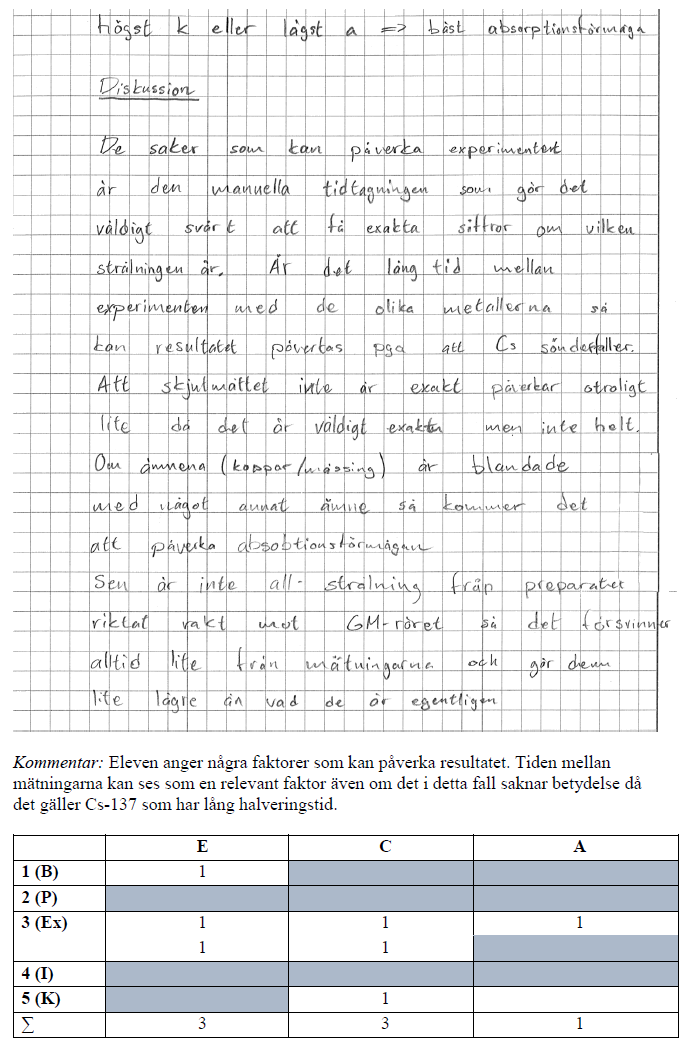 högst k eller lägst a => bäst absorptionsförmåga
Diskussion
De saker som kan påverka experimentet
är den manuella tidtagningen som gör det
väldigt svårt att få exakta siffror om vilken
strålningen är. Är det lång tid mellan
experimenten med de olika metallerna så
kan resultatet påvertas pga att Cs sönderfaller.
Att skjutmåttet inte är exakt påverkar otroligt
lite då det är väldigt exakta men inte helt.
Om ämnena (koppar/mässing) är blandade
med något annat ämne så kommer det
att påverka absobtionsförmågan
Sen är inte all strålning från preparatet
riktat rakt mot GM-röret så det försvinner
alltid lite från mätningarna och gör dem
lite lägre än vad de är egentligen
Kommentar: Eleven anger några faktorer som kan påverka resultatet. Tiden mellan
mätningarna kan ses som en relevant faktor även om det i detta fall saknar betydelse då
det gäller Cs-137 som har lång halveringstid.
E C A
1 (B) 1
2 (P)
3 (Ex) 1 1 1
1 1
4 (I)
5 (K) 1
∑ 3 3 1